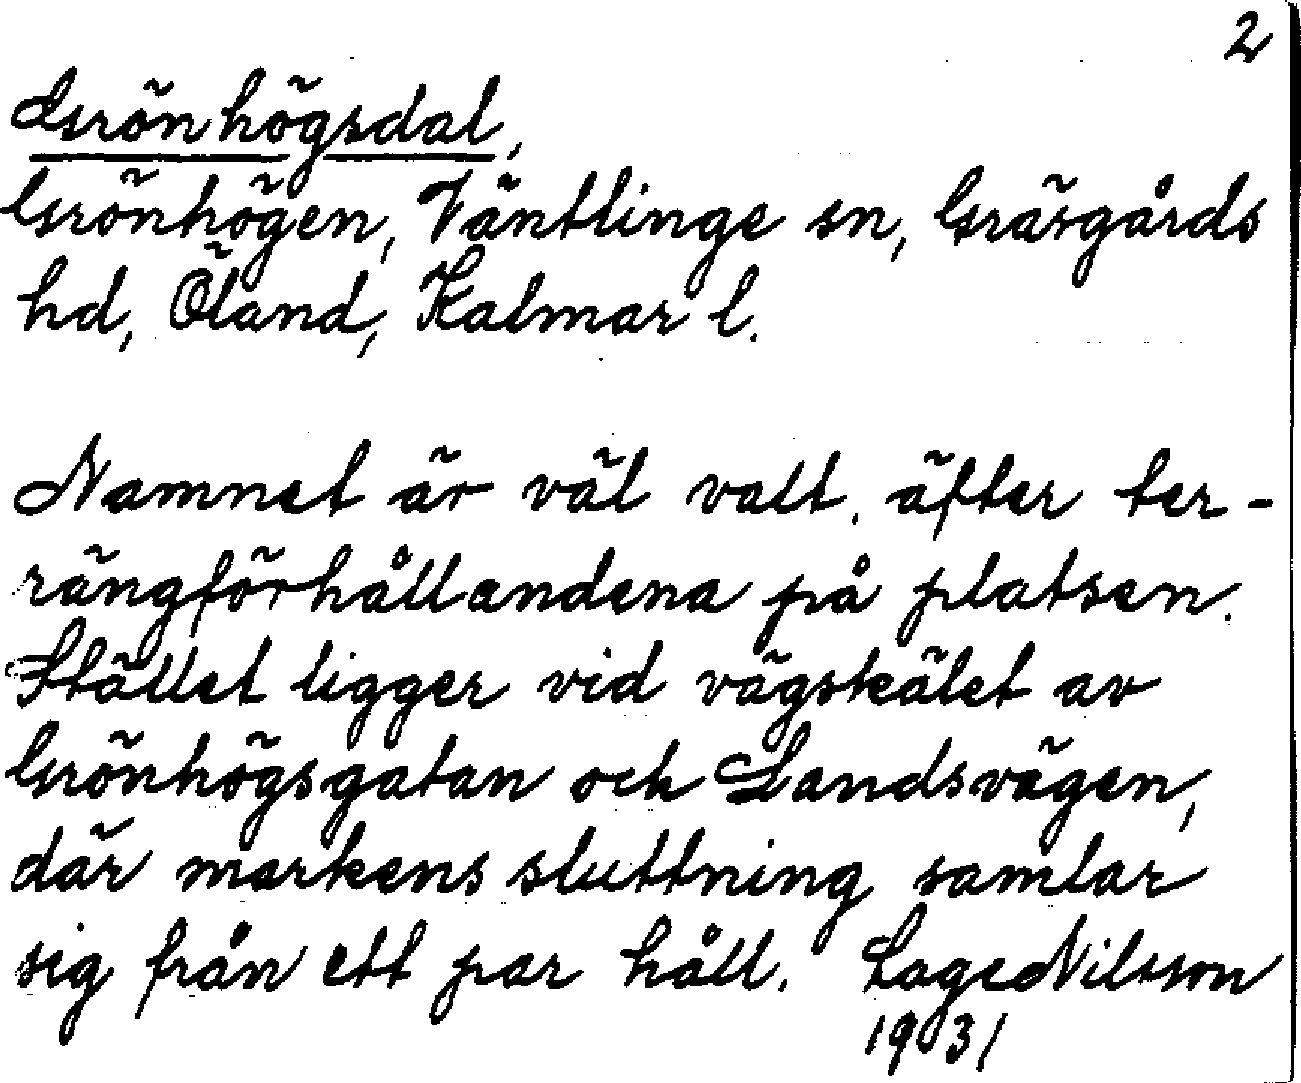 2
Grönhögsdal,
Grönhögen, Väntlinge sn, Gräsgårds
hd, Öland, Kalmar l.
Namnet är väl valt. äfter ter-
rängförhållandena på platsen.
Stället ligger vid vägskälet av
Grönhögsgatan och Landsvägen,
där markens sluttning samlar
sig från ett par håll. Lage Nilsson
1931